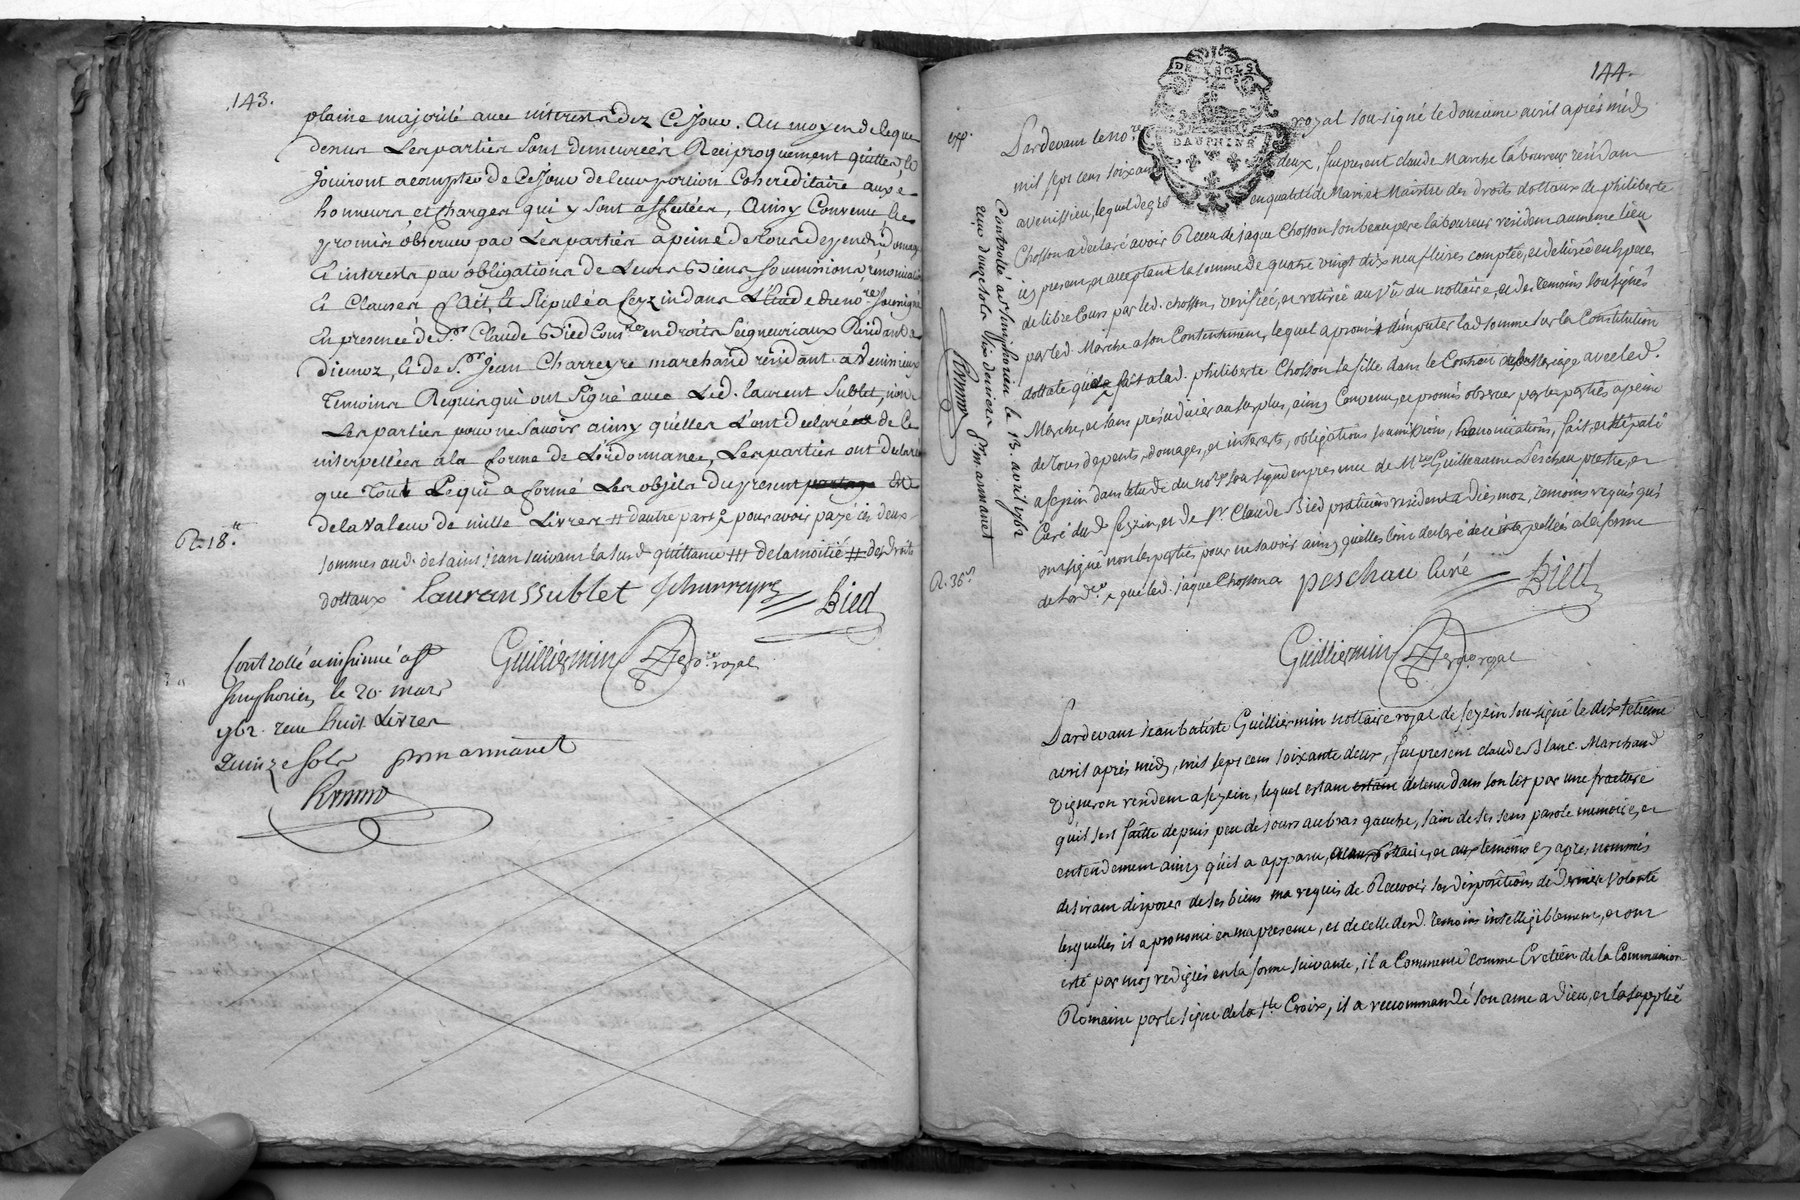 143.
plaine majorité avec interest dez Ce jour. Au moyen de le que
dessus Les parties sont demeurées Reciproquement quittes, et
jouiront a compter de Ce jour de leur portion Cohereditaire aux
honneurs et Charges qui y sont affectées, Ainsy Convenu
promis observer par Les parties a peine de tous depends domages
et interests par obligations de Leurs Biens, soumissions, renonciations
et Clauses fait, et stipulé a feyzin dans L'etude de no.re soussigné
En presence de S.r Claude Bied Com.re en droits seigneuriaux Residant a
Diemoz, et de S.r Jean Charreyre marchand residant a Venissieux
temoins Requis qui ont signé avec Led. laurent Sublet, non
Les parties pour ne savoir ainsy qu'elles L'ont declaré de ce
interpellées a la forme de L'ordonnance, Les parties ont declaré
que tout Ce qui a formé Les objets du present partage est
de la Valeur de mille Livres # d'autre part & pour avoir payé ces deux
sommes aud. de saint jean suivant la sus d. quittance ### de la moitié # des droits
dottaux
R. 18.tt
Lauran sSublet Jcharreyre Bied
Guilliermin No.re royal
Controllé et insinué a St
Simphorien le 20. mars
1762. reçu huit Livres
Quinze sols
144.
DAUPHINE
Pardevant le no.re royal soussigné le douzieme avril après midy
mil sept cens soixante deux, fut present claude Marche laboureur residant
a venissieu, lequel de gré en qualité de Mari et Maistre des droits dottaux de philiberte
Chosson a declaré avoir Receu de jaque Chosson son beau pere laboureur residen au meme lieu
icy present et acceptant la somme de quatre vingt dix neuf livres comptée, et delivrée en Especes
de libre Cours par led. chosson, verifiée, et retirée au Vû du nottaire, et des temoins soussignés
par led. Marche a son Contentement, lequel a promis d'imputer lad. somme sur la Constitution
dottale qu'il a fait a lad. philiberte Chosson sa fille dans le Contrat de Mariage avec led.
Marche, et sans prejudicier au surplus, ainsy Convenu, et promis observer par les parties a peine
de tous depents, domages, et interests, obligations, soumissions, renonciations, fait, et stipulé
a feyzin dans l'etude du no.re soussigné en presence de M.re Guilleaume Peschau pretre, et
Curé dud. feyzin, et de S.r Claude Bied praticien resident a Diesmoz, temoins requis qui
ont signé non les parties pour ne savoir ainsy qu'elles l'ont declaré de ce interpellées a la forme
de l'ord.ce
peschau Curé Bied
Guilliermin No.re royal
Controllé a St Simphorien le 13. avril 1762
reçu douze sols
R. 36
Pardevant jean batiste Guilliermin nottaire royal de feyzin soussigné le dix setième
avril après midy, mil sept cens soixante deux, fut present claude Blanc Marchand
Vigneron resident a feyzin, lequel estant detenu dans son lit par une fracture
qu'il s'est faitte depuis peu de jours au bras gauche, sain de ses sens parole memoire, et
entendement ainsy qu'il a apparu, et aux temoins cy apres nommés
desirant disposer de ses biens m'a requis de Recevoir ses dispositions de derniere Volonté
lesquelles il a prononcé en ma presence, et de celle desd. temoins intelligiblement, et ont
eté par moy redigées en la forme suivante, il a Commencé comme Cretien de la Communion
Romaine par le signe de la Ste Croix, il a recommandé son ame a Dieu, et la supplié